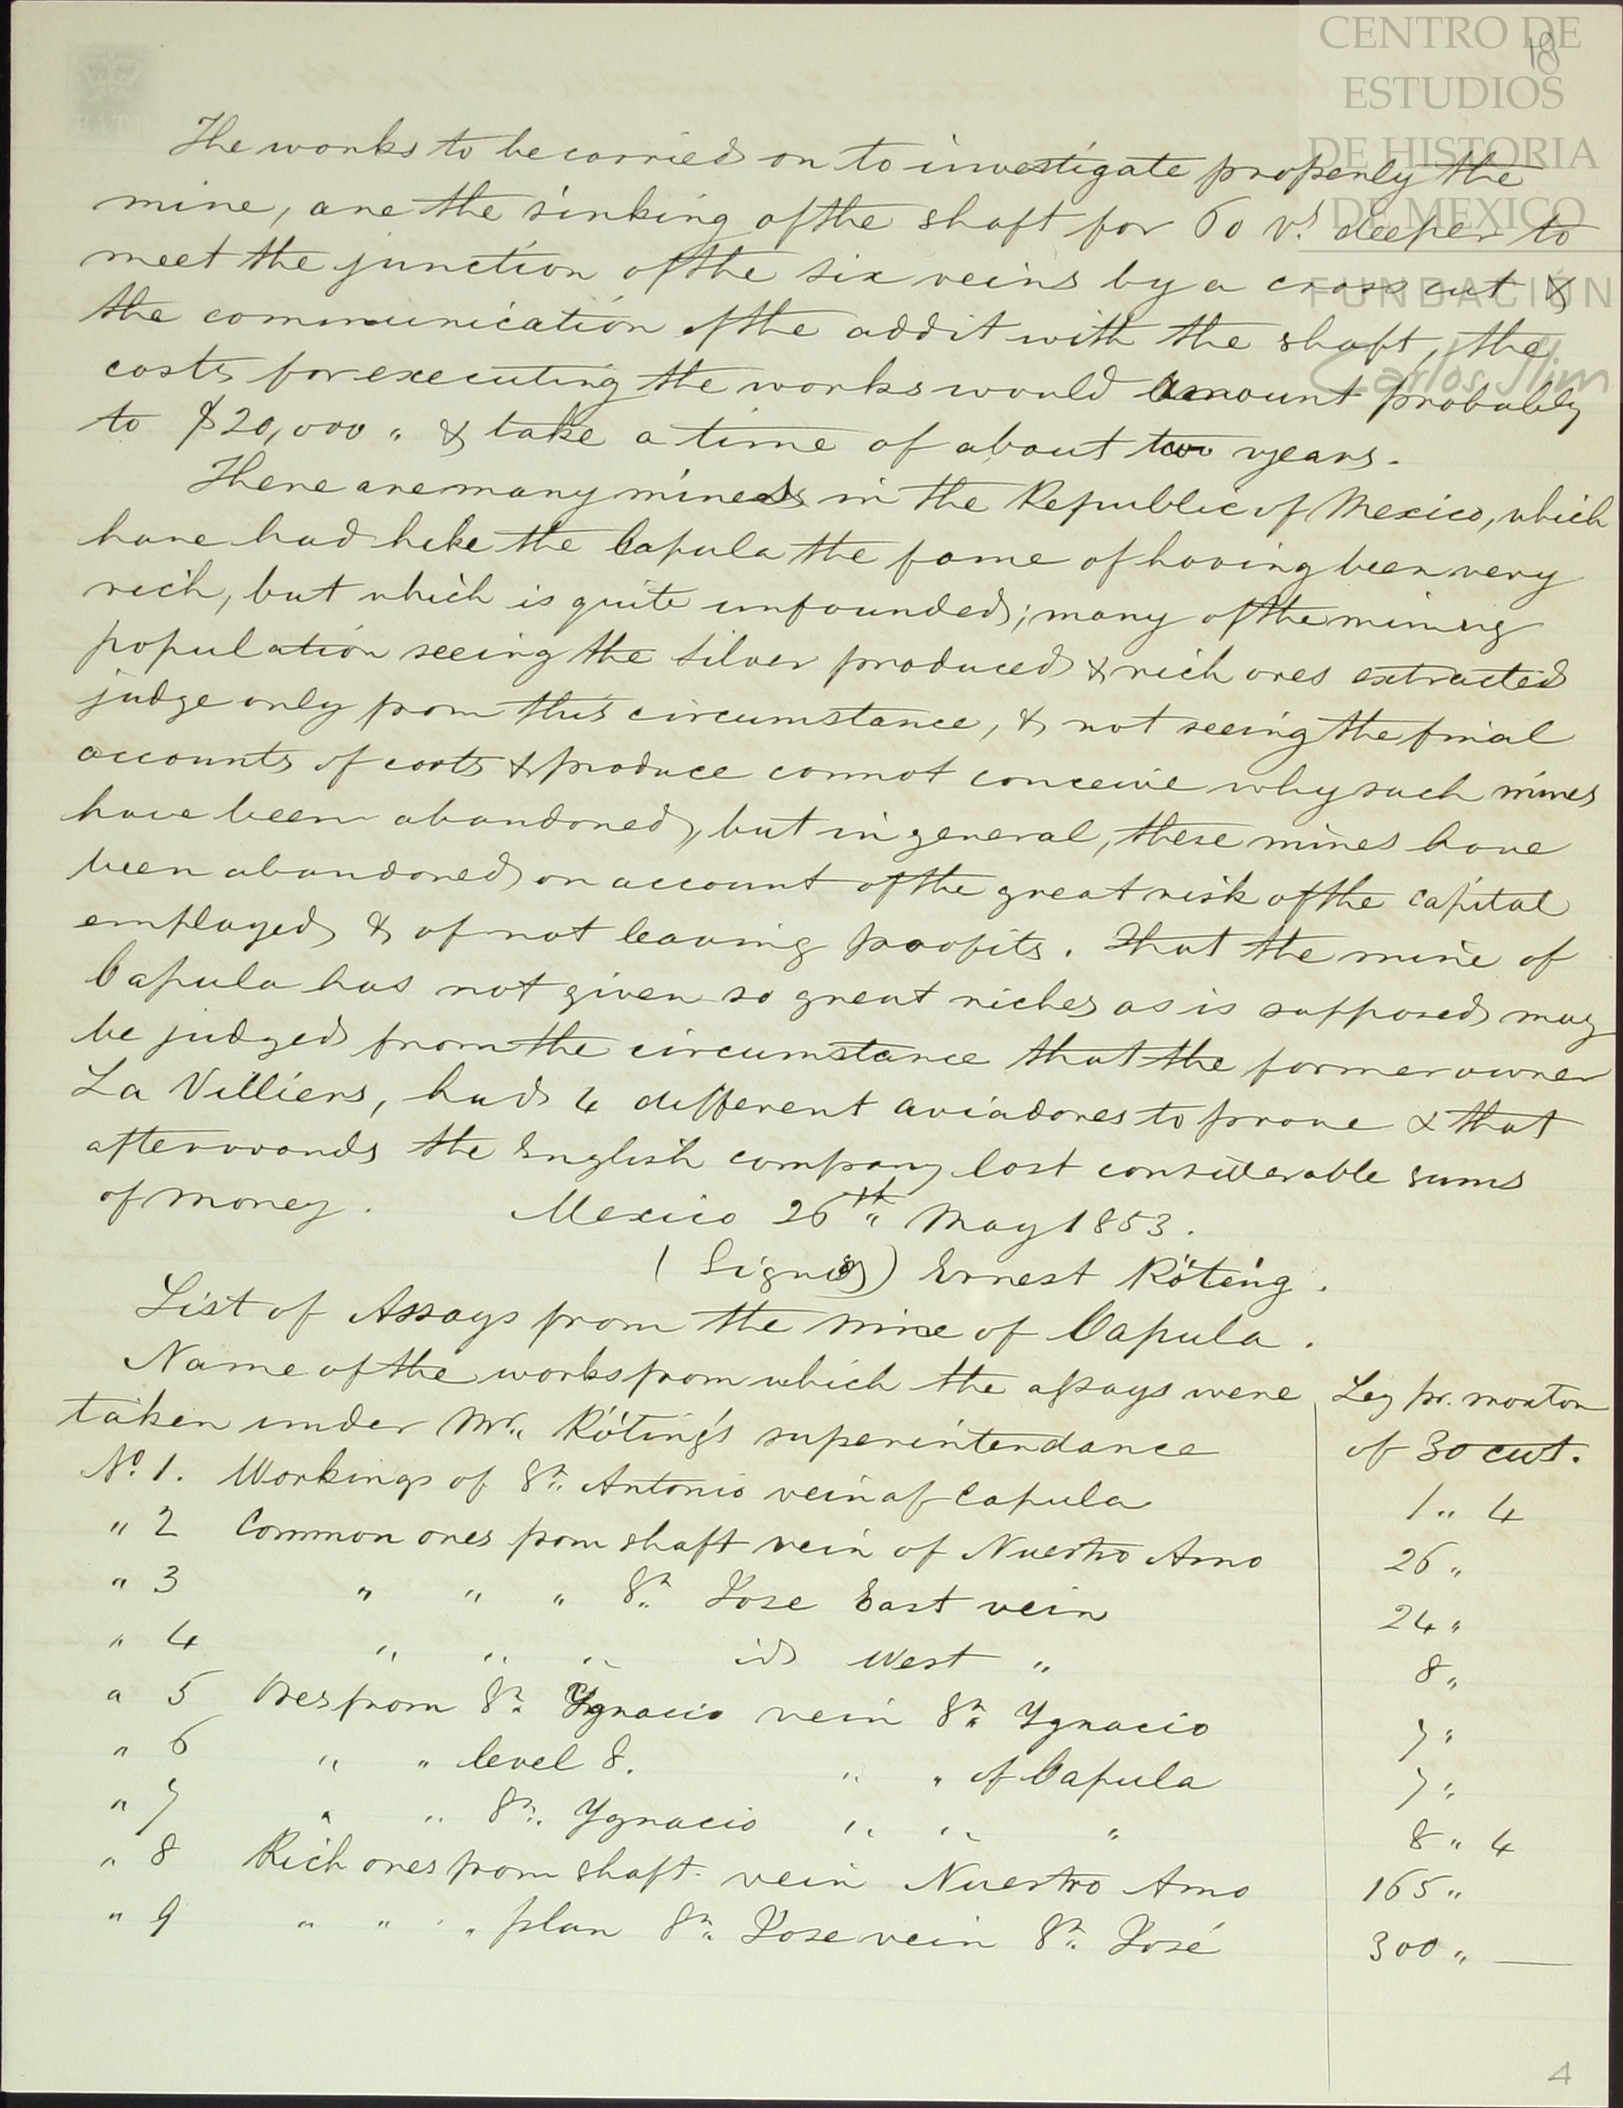 CENTRO DE
ESTUDIOS
DE HISTORIA
DE MEXICO
FUNDACIÓN
Carlos Slim
18
The works to be carried on to investigate properly the
mine, are the sinking of the shaft for 60 vs. deeper to
meet the junction of the six veins by a cross cut &
the communication of the addit with the shaft, the
costs for executing the works would amount probably
to $20,000 „ & take a time of about two years.
There are many mines in the Republic of Mexico, which
have had like the Capula the fame of having been very
rich, but which is quite unfounded; many of the mining
population seeing the silver produced & rich ores extracted
judge only from this circumstance, & not seeing the final
accounts of costs & produce cannot conceive why such mines
have been abandoned, but in general, these mines have
been abandoned on account of the great risk of the capital
employed & of not leaving profits. That the mine of
Capula has not given so great riches as is supposed may
be judged from the circumstance that the former owner
La Villiers, had 4 different aviadores to prove & that
afterwards the English company lost considerable sums
of money. Mexico 26th„ May 1853.
(Signed) Ernest Röting.
List of Assays from the mine of Capula.
Name of the works from which the assays were Ley pr. monton
taken under Mr„ Röting's superintendance of 30 cwt.
No. 1. Workings of Sn. Antonio vein of Capula 1 „ 4
„ 2 Common ores from shaft vein of Nuestro Amo 26 „
„ 3 „ „ „ Sn. Jose East vein 24 „
„ 4 „ „ „ id West „ 8 „
„ 5 Ores from Sn. Ygnacio vein Sn. Ygnacio 7 „
„ 6 „ „ level 8. „ „ of Capula 7 „
„ 7 „ „ Sn. Ygnacio „ „ „ 8 „ 4
„ 8 Rich ores from shaft. vein Nuestro Amo 165 „
„ 9 „ „ „ plan Sn. Jose vein Sn. José 300 „ —
4